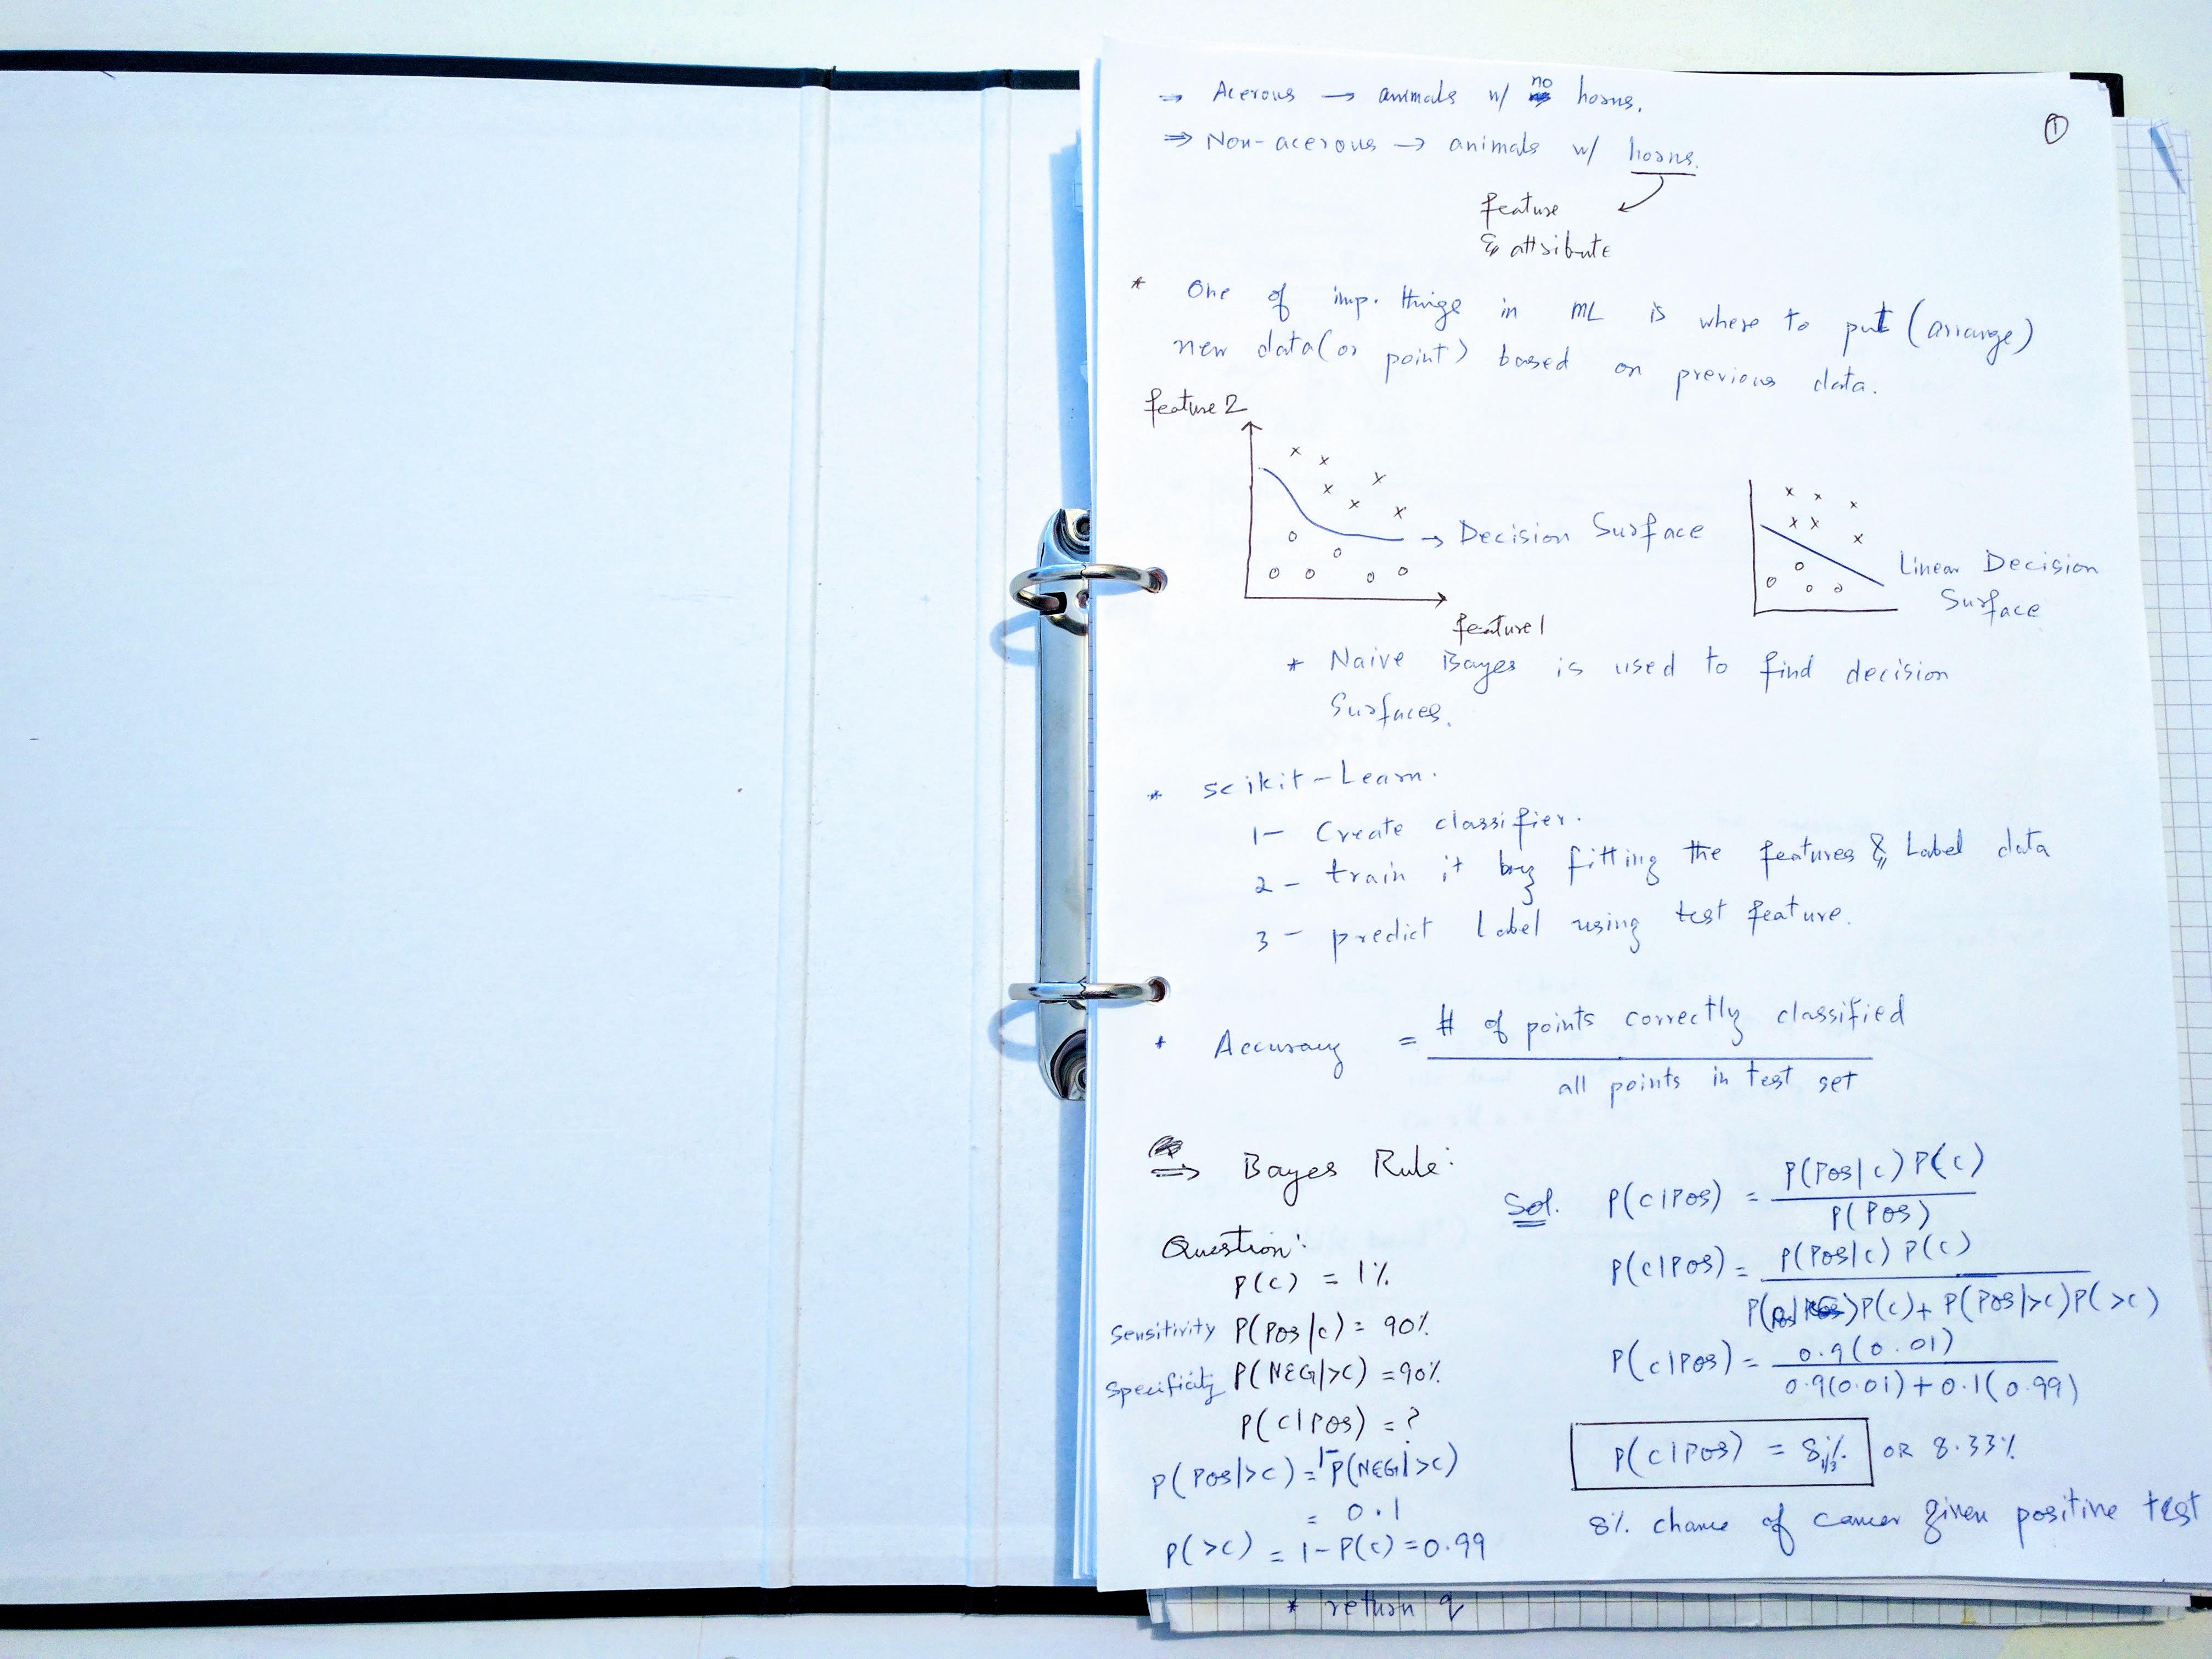 → Acerous → animals w/ no horns.
①
⇒ Non-acerous → animals w/ horns.
feature
& attribute
* One of imp. things in ML is where to put (arrange)
new data (or point) based on previous data.
feature 2
x x x x x x
→ Decision Surface
o o o o o o
feature 1
x x x x x x
Linear Decision
Surface
o o o o
* Naive Bayes is used to find decision
Surfaces.
* scikit-Learn.
1- Create classifier.
2- train it by fitting the features & Label data
3- predict Label using test feature.
* Accuracy = # of points correctly classified
all points in test set
⇒ Bayes Rule:
Question:
P(C) = 1%
Sensitivity P(Pos|C) = 90%
Specificity P(NEG|>C) = 90%
P(C|Pos) = ?
P(Pos|>C) = 1-P(NEG|>C)
= 0.1
P(>C) = 1-P(C) = 0.99
Sol. P(C|Pos) = P(Pos|C) P(C)
P(Pos)
P(C|Pos) = P(Pos|C) P(C)
P(Pos|C)P(C) + P(Pos|>C)P(>C)
P(C|Pos) = 0.9(0.01)
0.9(0.01) + 0.1(0.99)
P(C|Pos) = 8 1/3 % OR 8.33%
8% chance of cancer given positive test
* return q